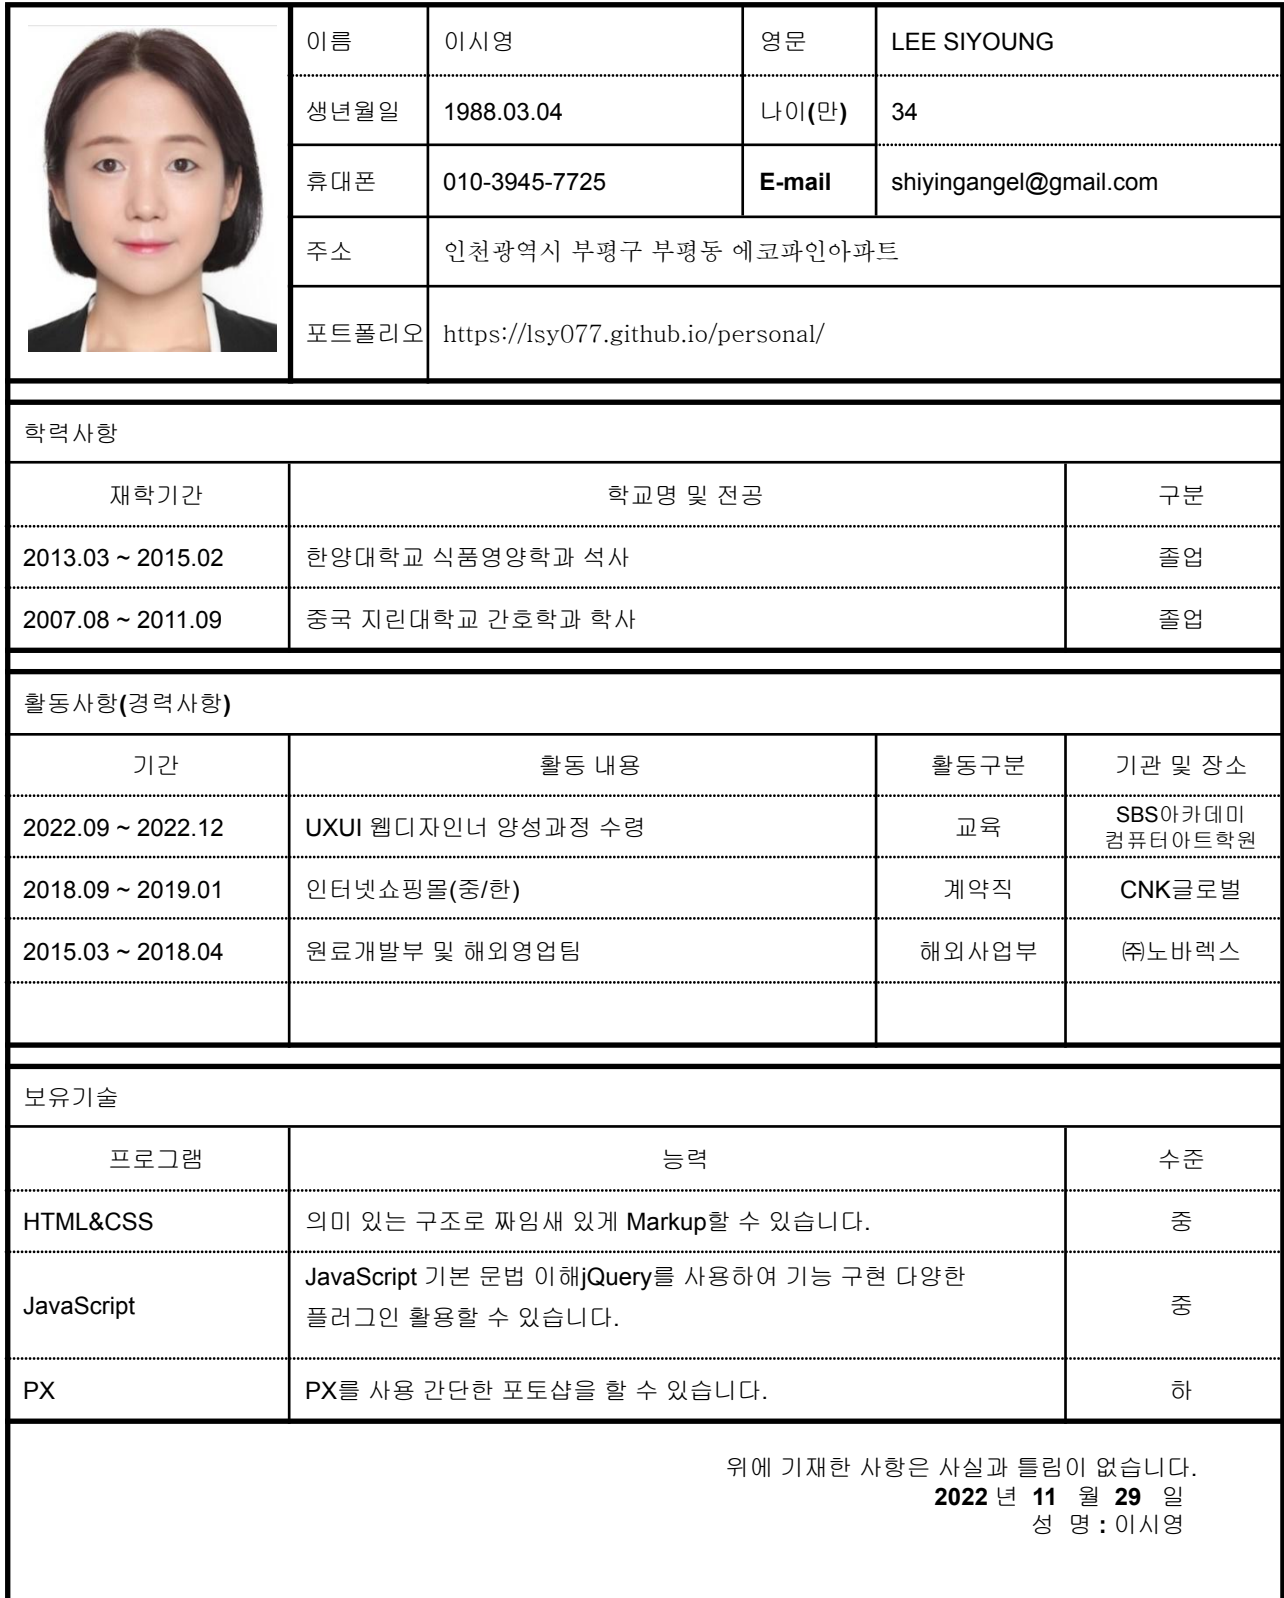 이름 이시영 영문 LEE SIYOUNG
생년월일 1988.03.04 나이(만) 34
휴대폰 010-3945-7725 E-mail shiyingangel@gmail.com
주소 인천광역시 부평구 부평동 에코파인아파트
포트폴리오 https://lsy077.github.io/personal/
학력사항
재학기간 학교명 및 전공 구분
2013.03 ~ 2015.02 한양대학교 식품영양학과 석사 졸업
2007.08 ~ 2011.09 중국 지린대학교 간호학과 학사 졸업
활동사항(경력사항)
기간 활동 내용 활동구분 기관 및 장소
2022.09 ~ 2022.12 UXUI 웹디자인너 양성과정 수령 교육 SBS아카데미
컴퓨터아트학원
2018.09 ~ 2019.01 인터넷쇼핑몰(중/한) 계약직 CNK글로벌
2015.03 ~ 2018.04 원료개발부 및 해외영업팀 해외사업부 ㈜노바렉스
보유기술
프로그램 능력 수준
HTML&CSS 의미 있는 구조로 짜임새 있게 Markup할 수 있습니다. 중
JavaScript JavaScript 기본 문법 이해jQuery를 사용하여 기능 구현 다양한
플러그인 활용할 수 있습니다. 중
PX PX를 사용 간단한 포토샵을 할 수 있습니다. 하
위에 기재한 사항은 사실과 틀림이 없습니다.
2022 년 11 월 29 일
성 명 : 이시영